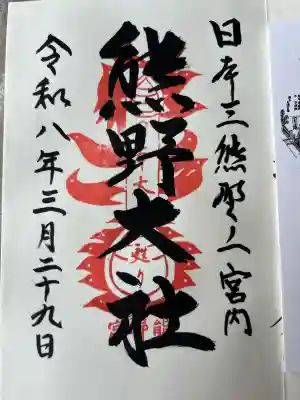 日本三熊野ノ一宮内
熊野大社
令和八年三月二十九日